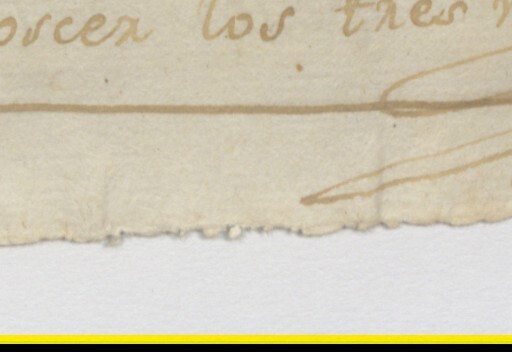 oscer los tres